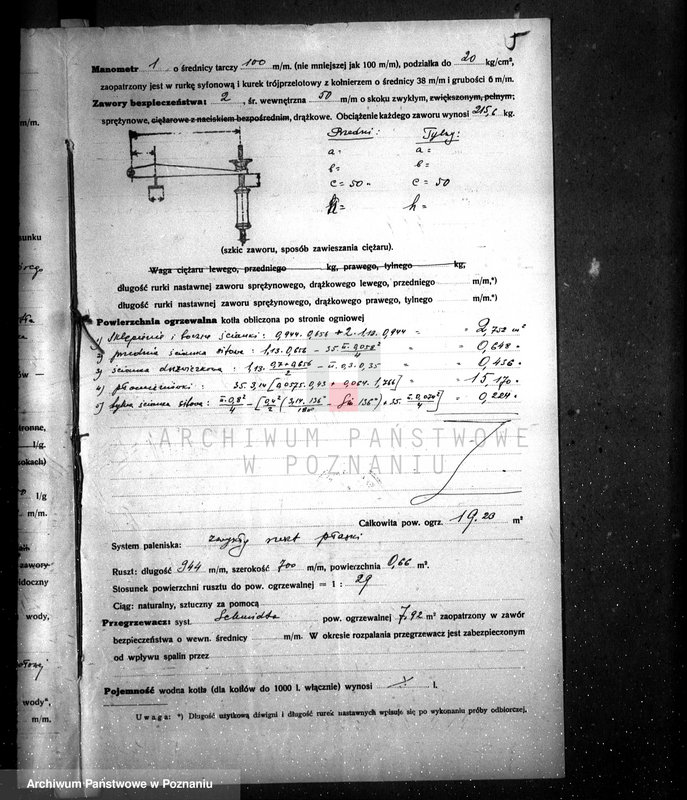 5
Manometr 1 o średnicy tarczy 100 m/m. (nie mniejszej jak 100 m/m), podziałka do 20 kg/cm²,
zaopatrzony jest w rurkę syfonową i kurek trójprzelotowy z kołnierzem o średnicy 38 m/m i grubości 6 m/m.
Zawory bezpieczeństwa: 2, śr. wewnętrzna 50 m/m o skoku zwykłym, zwiększonym, pełnym,
sprężynowe, ciężarowe z naciskiem bezpośrednim, drążkowe. Obciążenie każdego zaworu wynosi 215,6 kg.
Przedni: Tylny:
a = a =
b = b =
c = 50 c = 50
h = h =
(szkic zaworu, sposób zawieszania ciężaru).
Waga ciężaru lewego, przedniego kg, prawego, tylnego kg,
długość rurki nastawnej zaworu sprężynowego, drążkowego lewego, przedniego m/m.*)
długość rurki nastawnej zaworu sprężynowego, drążkowego prawego, tylnego m/m.*)
Powierzchnia ogrzewalna kotła obliczona po stronie ogniowej
1) Sklepienie i boczne ścianki: 0,944. 0,656 + 2. 1,13. 0,944 = 2,752 m²
2) przednia ścianka sitowa: 1,13. 0,656 - 35. π. 0,058²/4 = 0,648
3) ścianka drzwiczkowa: 1,13. 0,7+0,656/2 - π. 0,3. 0,35 = 0,436
4) płomieniówki: 35. 3,14 [0,0575. 0,43 + 0,064. 1,766] = 15,170
5) tylna ścianka sitowa: π. 0,8²/4 - [0,4²/2 (3,14. 136°/180 - Sin 136°) + 35. π. 0,070²/4] = 0,224
ARCHIWUM PAŃSTWOWE
W POZNANIU
Całkowita pow. ogrz. 19.23 m²
System paleniska: zwykły ruszt płaski
Ruszt: długość 944 m/m, szerokość 700 m/m, powierzchnia 0,66 m².
Stosunek powierzchni rusztu do pow. ogrzewalnej = 1 : 29
Ciąg: naturalny, sztuczny za pomocą
Przegrzewacz: syst. Schmidta pow. ogrzewalnej 7,92 m² zaopatrzony w zawór
bezpieczeństwa o wewn. średnicy m/m. W okresie rozpalania przegrzewacz jest zabezpieczonym
od wpływu spalin przez
Pojemność wodna kotła (dla kotłów do 1000 l. włącznie) wynosi l.
Uwaga: *) Długość użytkową dźwigni i długość rurek nastawnych wpisuje się po wykonaniu próby odbiorczej.
m/m.
sunku
l/g.
l/g
m/m.
wody,
wody",
m/m.
Archiwum Państwowe w Poznaniu